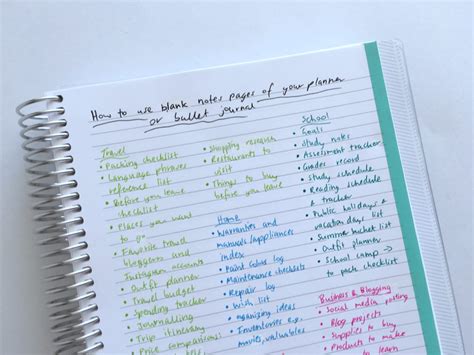 How to use blank notes pages of your planner
or bullet journal
Travel
• Packing checklist
• Language phrases
reference list
• Before you leave
checklist
• Places you want
to go
• Favorite travel
bloggers and
Instagram accounts
• Outfit planner
• Travel budget
• Spending tracker
• Journalling
• Trip itinerary
• Price comparisons
• Shopping research
• Restaurants to
visit
• Things to buy
before you leave
Home
• Warranties and
manuals/appliances
index
• Paint color log
• Maintenance checklists
• Repair log
• Wish list
• Organizing ideas
• Inventories e.g.
movies, valuables
School
• Goals
• Study notes
• Assessment tracker
• Grades record
• Study schedule
• Reading schedule
& tracker
• Public holidays &
vacation days list
• Summer bucket list
• Outfit planner
• School camp →
to pack checklist
Business & Blogging
• Social media posting
• Blog projects
• Supplies to buy
• Products to make
to learn